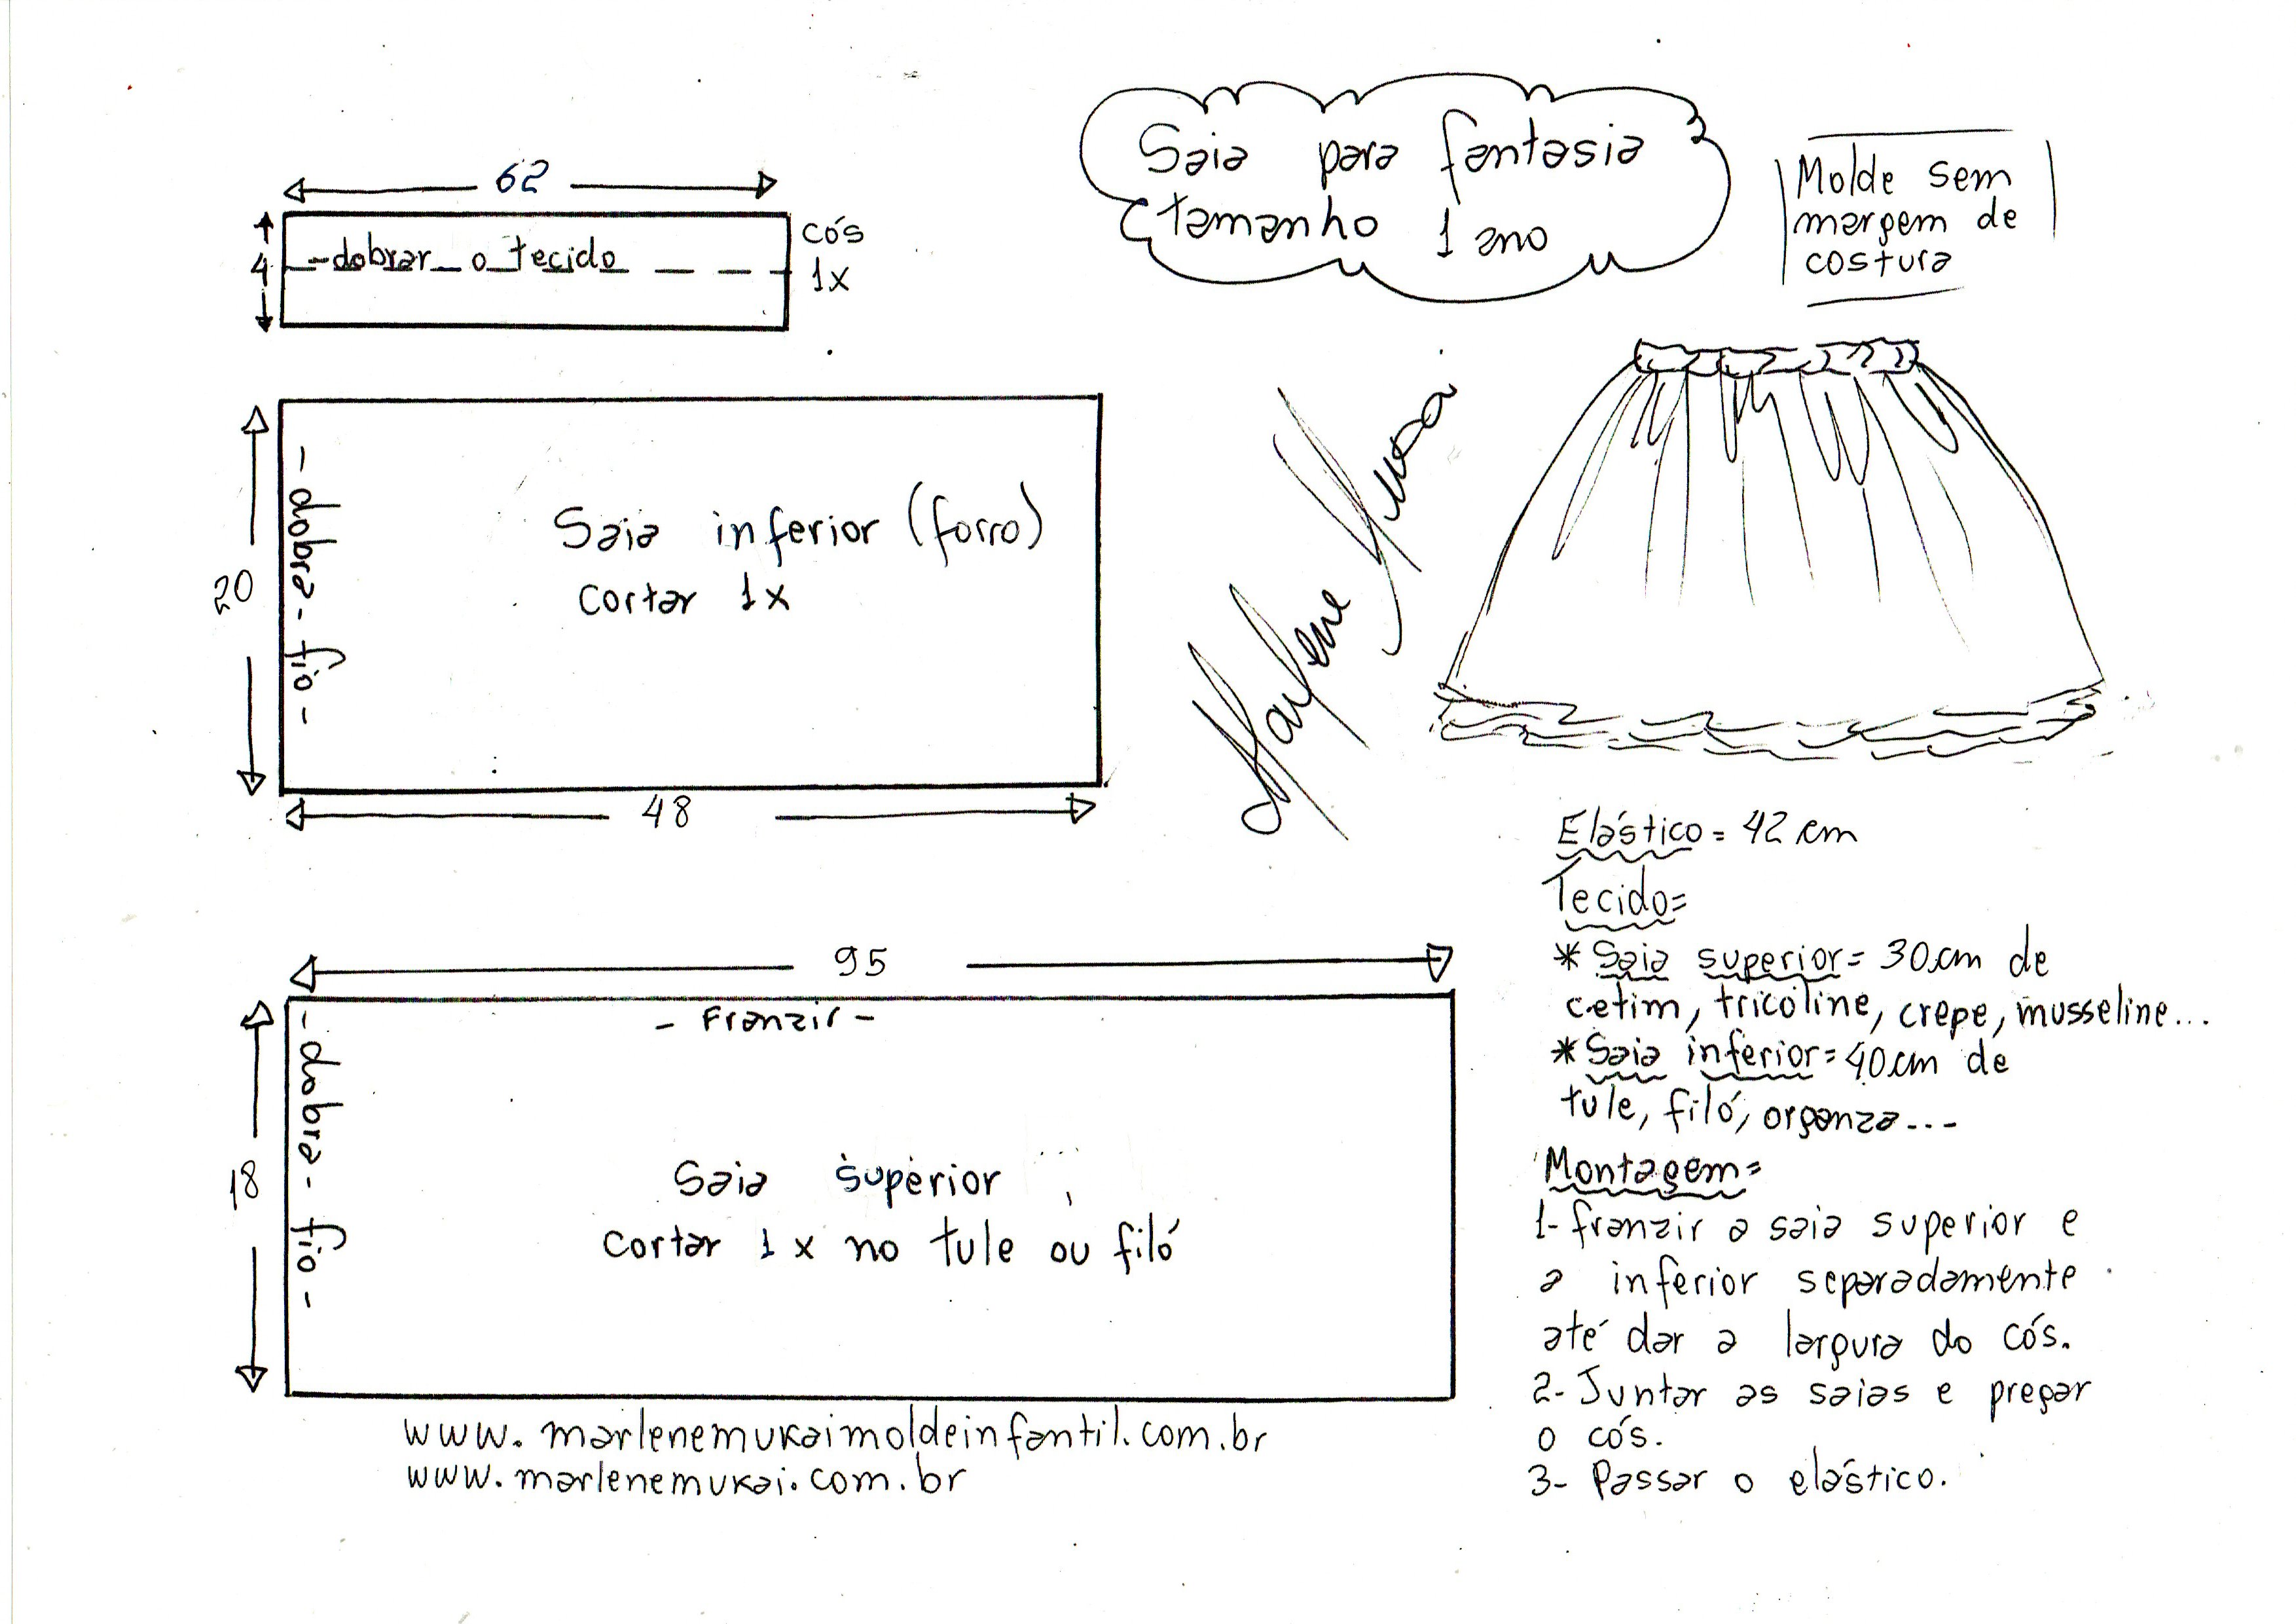 Saia para fantasia
tamanho 1 ano
Molde sem
margem de
costura
62
4
-dobrar o tecido
cós
1x
20
-dobra- fio-
Saia inferior (forro)
cortar 1x
48
Marlene Mukai
95
18
- Franzir -
-dobra- fio-
Saia superior
cortar 1x no tule ou filó
www.marlenemukaimoldeinfantil.com.br
www.marlenemukai.com.br
Elástico= 42 cm
Tecido=
* Saia superior= 30cm de
cetim, tricoline, crepe, musseline...
* Saia inferior= 40cm de
tule, filó, organza...
Montagem=
1- franzir a saia superior e
a inferior separadamente
até dar a largura do cós.
2- Juntar as saias e pregar
o cós.
3- Passar o elástico.